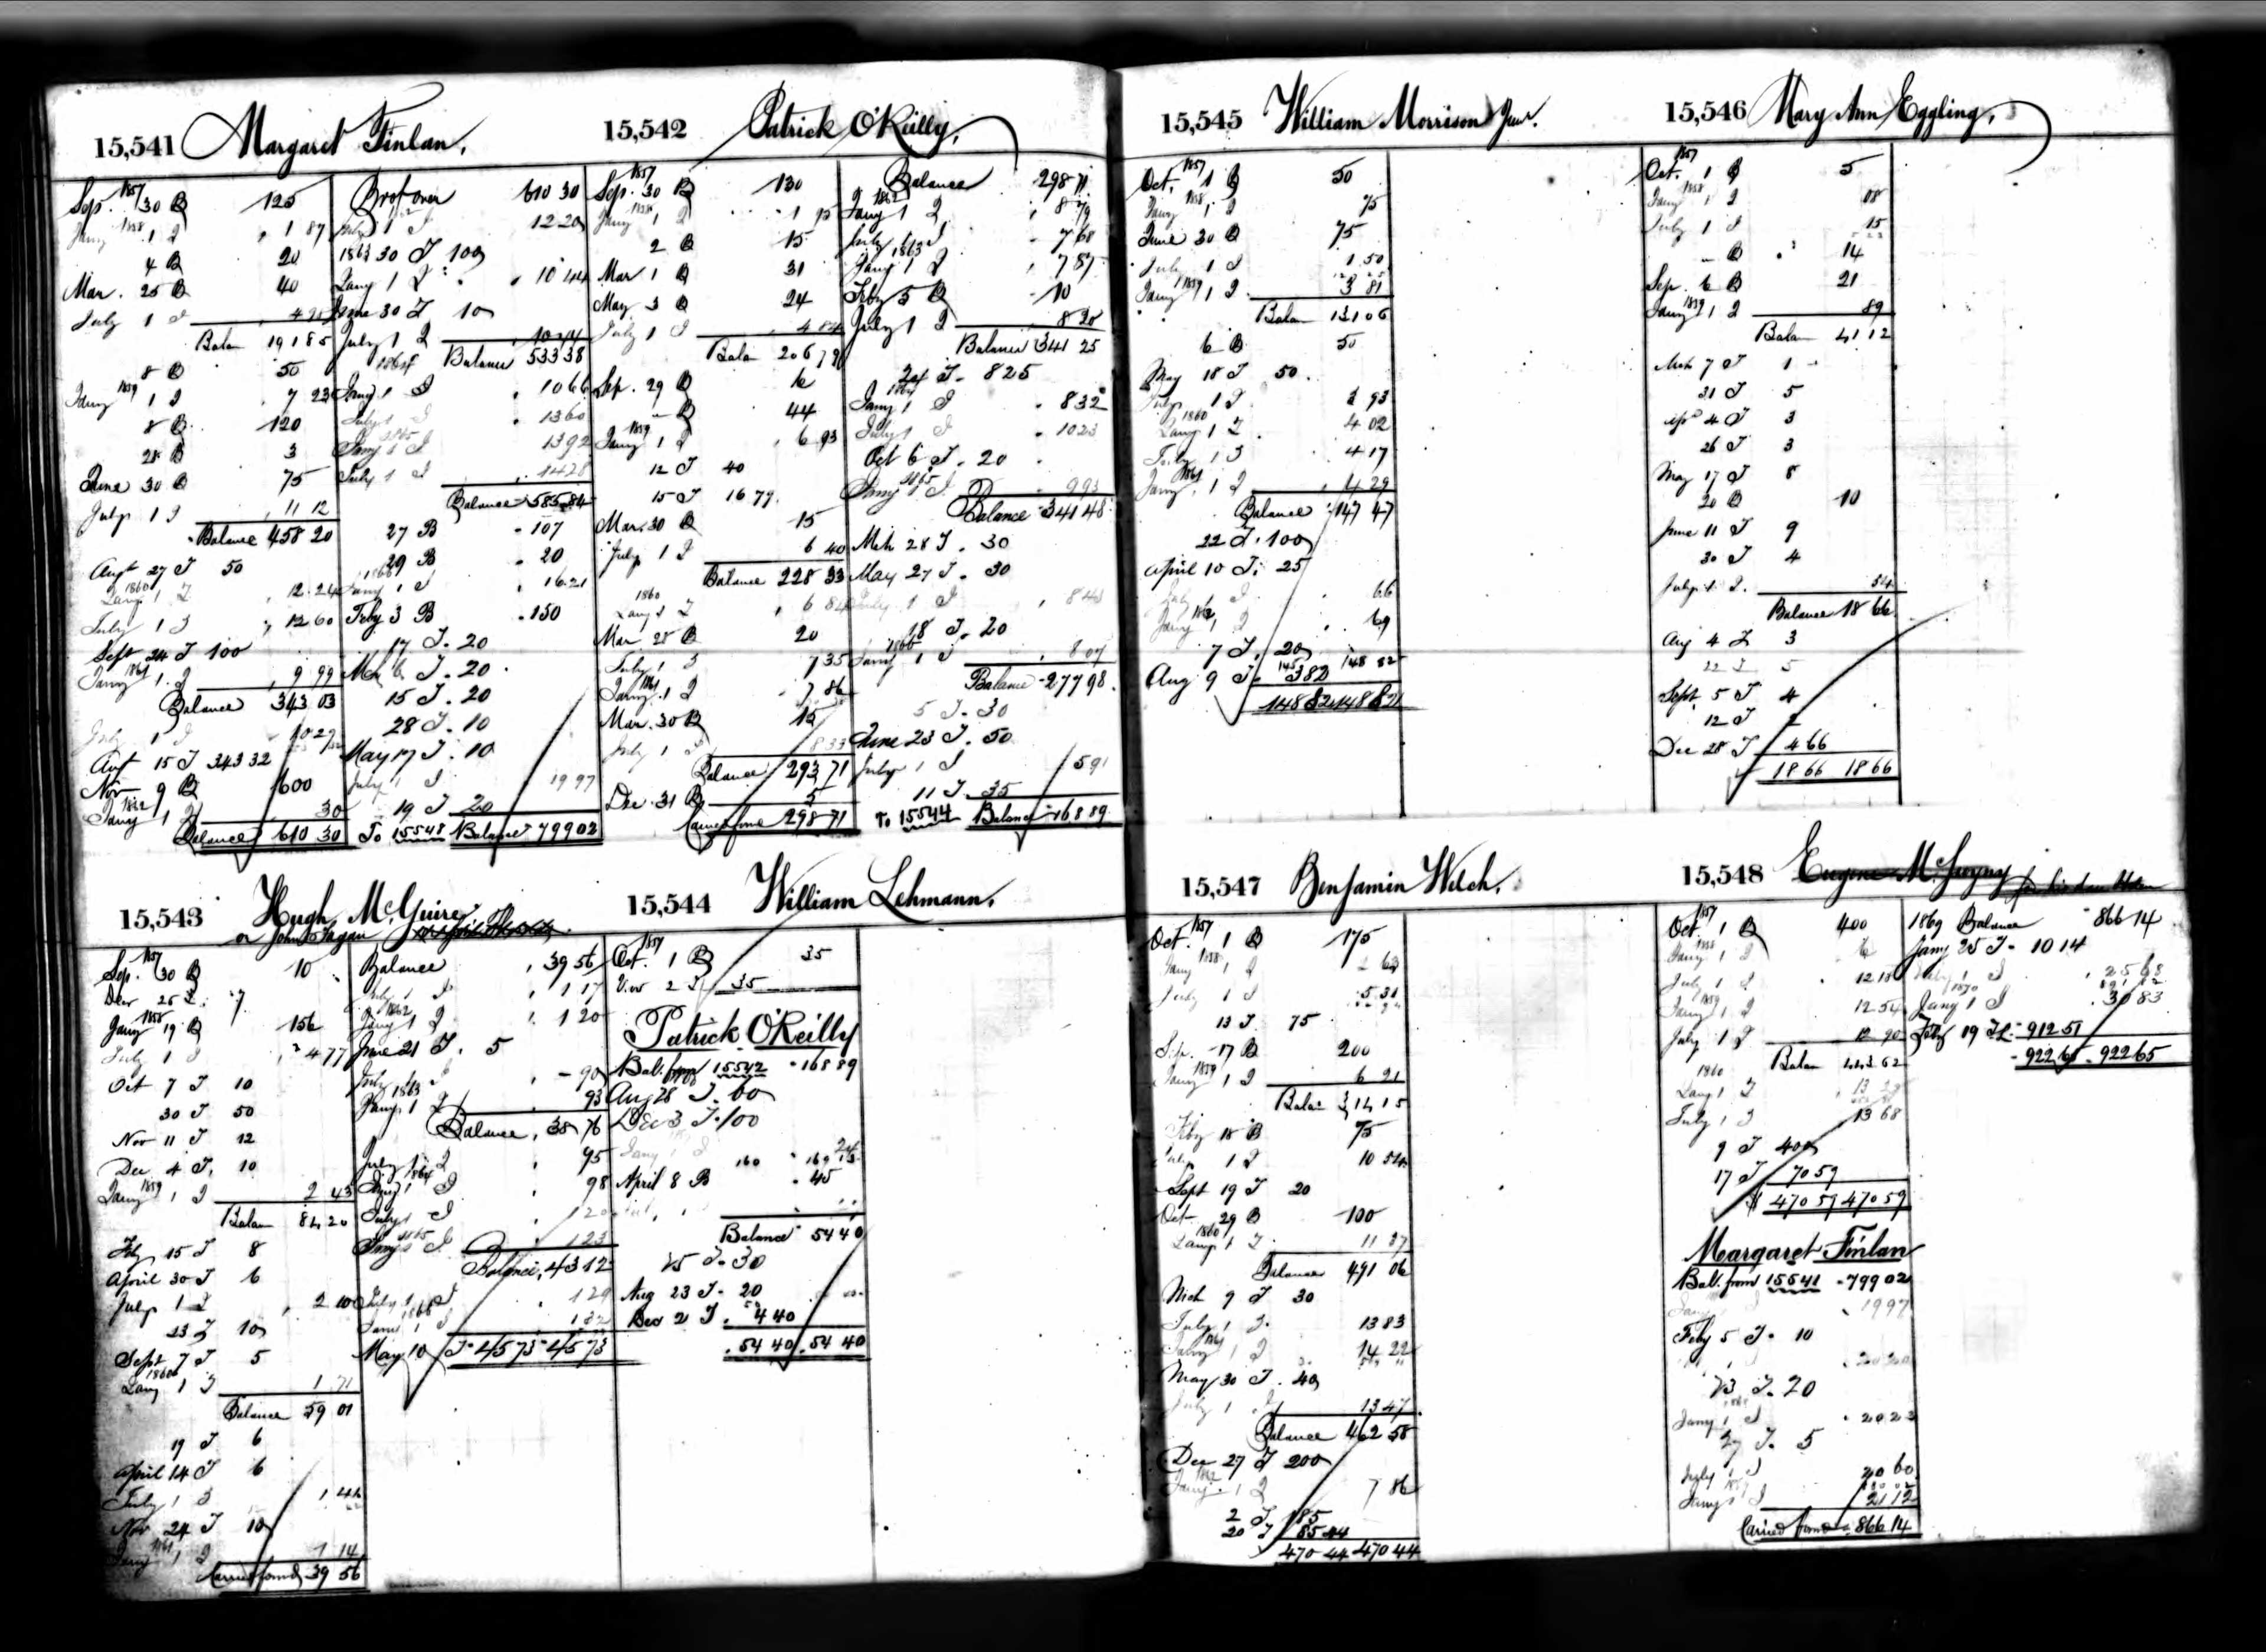 15,541 Margaret Finlan.
Sep. 1857 30 B 125
Jany 1858 1 I 1 87
4 B 20
Mar. 25 B 40
July 1 I
Balan 191 85
8 B 50
Jany 1859 1 I 7 23
8 B 120
28 B 3
June 30 B 75
July 1 I 11 12
Balance 458 20
Augt 27 T 50
1860 Jany 1 I 12 24
July 1 I 12 60
Sept 24 T 100
Jany 1861 1 I 9 99
Balance 343 03
July 1 I 10 29
Augt 15 T 343 32
Nov 9 B 600
Jany 1862 1 I 30
Balance 610 30
Brot over 610 30
July 1 I 12 20
30 T 100
1863 Jany 1 I 10 44
June 30 T 10
July 1 I 10 44
Balance 533 38
1864 Jany 1 I 10 66
July 1 I 13 60
1865 Jany 1 I 13 92
July 1 I 14 28
Balance 585 84
27 B 107
29 B 20
1866 Jany 1 I 16 21
Feby 3 B 150
17 T 20
Mch 6 T 20
15 T 20
28 T 10
May 17 T 10
July 1 I 19 97
19 T 20
To 15548 Balance 799 02
15,542 Patrick O'Reilly,
Sep. 1857 30 B 130
Jany 1858 1 I
2 B 15
Mar 1 B 31
May 3 B 24
July 1 I 4 84
Balan 206 79
Sep. 29 B
B 44
Jany 1859 1 I 6 93
12 T 40
15 T 16 79
Mar. 30 B 15
July 1 I 6 40
Balance 228 33
1860 Jany 1 I 6 84
Mar 28 B 20
July 1 I 7 35
Jany 1861 1 I 7 86
Mar. 30 B 15
July 1 I 8 33
Balance 293 71
Dec. 31 B 5
Carried forwd 298 71
Balance 298 71
1862 Jany 1 I 8 79
July 1 I 7 68
1863 Jany 1 I 7 87
Feby 5 B 10
July 1 I 8 20
Balance 341 25
24 T 8 25
1864 Jany 1 I 8 32
July 1 I 10 23
Oct 6 T 20
1865 Jany 1 I 9 93
Balance 341 48
Mch 28 T 30
May 27 T 30
July 1 I
18 T 20
1866 Jany 1 I 8 07
Balance 277 98
5 T 30
June 23 T 50
July 1 I 5 91
11 T 35
To 15544 Balance 168 89
15,543 Hugh McGuire
or John Fagan
Sep. 1857 30 B 10
Dec 26 T 7
Jany 1858 19 B 156
July 1 I 4 77
Oct 7 T 10
30 T 50
Nov 11 T 12
Dec 4 T 10
Jany 1859 1 I 2 43
Balan 84 20
Feby 15 T 8
April 30 T 6
July 1 I 2 10
23 T 10
Sept 7 T 5
1860 Jany 1 I 1 71
Balance 59 01
19 T 6
April 14 T 6
July 1 I 1 41
Nov 24 T 10
Jany 1861 1 I 1 14
Carried forwd 39 56
Balance 39 56
July 1 I 1 17
1862 Jany 1 I 1 20
June 21 T 5
July 1 I 90
1863 Jany 1 I 93
Balance 38 76
July 1 I 95
1864 Jany 1 I 98
July 1 I 1 20
1865 Jany 1 I 1 23
Balance 43 12
July 1 I 1 29
1866 Jany 1 I 1 32
May 10 T 45 73 45 73
15,544 William Lehmann.
Oct. 1857 1 B 35
Nov 2 T 35
Patrick O'Reilly
Bal. from 15542 168 89
Aug 28 T 60
Dec 3 T 100
Jany 1 I
160 169
April 8 B 45
Balance 54 40
15 T 30
Aug 23 T 20
Dec 2 T 4 40
54 40 54 40
15,545 William Morrison Junr.
Oct. 1857 1 B 50
Jany 1858 1 I 75
June 30 B 75
July 1 I 1 50
Jany 1859 1 I 3 81
Balan 131 06
6 B 50
May 18 T 50
July 1 I 3 93
1860 Jany 1 I 4 02
July 1 I 4 17
Jany 1861 1 I 4 29
Balance 147 47
22 T 100
April 10 T 25
July 1 I 66
Jany 1862 1 I 69
7 T 20
Aug 9 T 3 82 148 82
148 82 148 82
15,546 Mary Ann Eggling,
Oct. 1857 1 B 5
Jany 1858 1 I 08
July 1 I 15
B 14
Sep. 6 B 21
Jany 1859 1 I 89
Balan 41 12
Mch 7 T 1
21 T 5
Apl 4 T 3
26 T 3
May 17 T 8
20 B 10
June 11 T 9
30 T 4
July 1 I 54
Balance 18 66
Aug 4 T 3
22 T 5
Sept 5 T 4
12 T 2
Dec 28 T 4 66
18 66 18 66
15,547 Benjamin Welch.
Oct. 1857 1 B 175
Jany 1858 1 I 2 63
July 1 I 5 31
13 T 75
Sep. 17 B 200
Jany 1859 1 I 6 21
Balan 314 15
Feby 18 B 75
July 1 I 10 54
Sept 19 T 20
Oct 29 B 100
1860 Jany 1 I 11 37
Balance 491 06
Mch 9 T 30
July 1 I 13 83
Jany 1861 1 I 14 22
May 30 T 40
July 1 I 13 47
Balance 462 58
Dec 27 T 200
Jany 1862 1 I 7 86
2 T 185
20 T 85 44
470 44 470 44
15,548 Eugene
Oct. 1857 1 B 400
Jany 1858 1 I 6
July 1 I 12 18
Jany 1859 1 I 12 54
July 1 I 12 90
Balan 443 62
1860 Jany 1 I 13 29
July 1 I 13 68
9 T 400
17 T 70 59
$ 470 59 470 59
Margaret Finlan
Bal. from 15541 799 02
Jany 1 I 19 97
Feby 5 T 10
23 T 20
Jany 1 I 20 23
27 T 5
July 1 I 20 60
Jany 1 I 21 12
Carried forwd 866 14
1869 Balance 866 14
Jany 25 T 10 14
July 1 I 25 68
1870 Jany 1 I 30 83
Feby 19 T 912 51
922 65 922 65